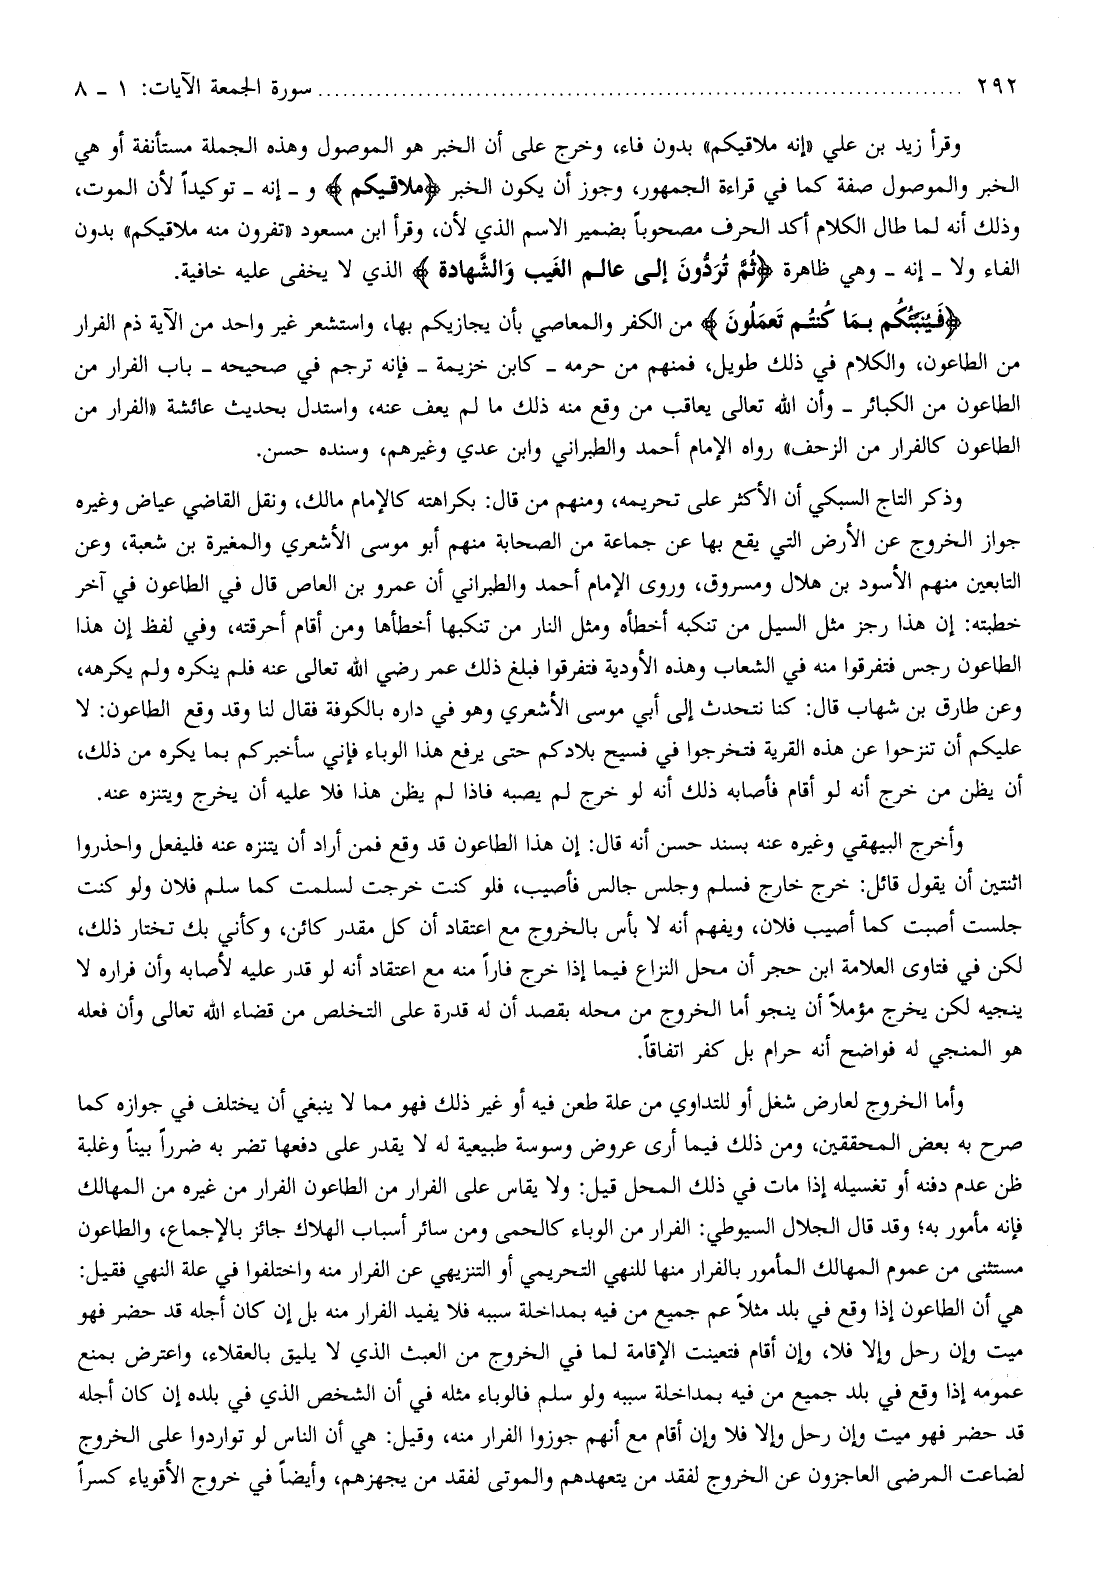 ٢٩٢ ........................................................................ سورة الجمعة الآيات: ١ ـ ٨
وقرأ زيد بن علي «إنه ملاقيكم» بدون فاء، وخرج على أن الخبر هو الموصول وهذه الجملة مستأنفة أو هي
الخبر والموصول صفة كما في قراءة الجمهور، وجوز أن يكون الخبر ﴿ملاقيكم﴾ و ـ إنه ـ توكيداً لأن الموت،
وذلك أنه لما طال الكلام أكد الحرف مصحوباً بضمير الاسم الذي لأن، وقرأ ابن مسعود «تفرون منه ملاقيكم» بدون
الفاء ولا ـ إنه ـ وهي ظاهرة ﴿ثُمَّ تُرَدُّونَ إلى عالم الغَيب وَالشَّهادة﴾ الذي لا يخفى عليه خافية.
﴿فَيُنَبِّئُكُم بمَا كُنتُم تَعمَلُونَ﴾ من الكفر والمعاصي بأن يجازيكم بها، واستشعر غير واحد من الآية ذم الفرار
من الطاعون، والكلام في ذلك طويل، فمنهم من حرمه ـ كابن خزيمة ـ فإنه ترجم في صحيحه ـ باب الفرار من
الطاعون من الكبائر ـ وأن الله تعالى يعاقب من وقع منه ذلك ما لم يعف عنه، واستدل بحديث عائشة «الفرار من
الطاعون كالفرار من الزحف» رواه الإمام أحمد والطبراني وابن عدي وغيرهم، وسنده حسن.
وذكر التاج السبكي أن الأكثر على تحريمه، ومنهم من قال: بكراهته كالإمام مالك، ونقل القاضي عياض وغيره
جواز الخروج عن الأرض التي يقع بها عن جماعة من الصحابة منهم أبو موسى الأشعري والمغيرة بن شعبة، وعن
التابعين منهم الأسود بن هلال ومسروق، وروى الإمام أحمد والطبراني أن عمرو بن العاص قال في الطاعون في آخر
خطبته: إن هذا رجز مثل السيل من تنكبه أخطأه ومثل النار من تنكبها أخطأها ومن أقام أحرقته، وفي لفظ إن هذا
الطاعون رجس فتفرقوا منه في الشعاب وهذه الأودية فتفرقوا فبلغ ذلك عمر رضي الله تعالى عنه فلم ينكره ولم يكرهه،
وعن طارق بن شهاب قال: كنا نتحدث إلى أبي موسى الأشعري وهو في داره بالكوفة فقال لنا وقد وقع الطاعون: لا
عليكم أن تنزحوا عن هذه القرية فتخرجوا في فسيح بلادكم حتى يرفع هذا الوباء فإني سأخبركم بما يكره من ذلك،
أن يظن من خرج أنه لو أقام فأصابه ذلك أنه لو خرج لم يصبه فاذا لم يظن هذا فلا عليه أن يخرج ويتنزه عنه.
وأخرج البيهقي وغيره عنه بسند حسن أنه قال: إن هذا الطاعون قد وقع فمن أراد أن يتنزه عنه فليفعل واحذروا
اثنتين أن يقول قائل: خرج خارج فسلم وجلس جالس فأصيب، فلو كنت خرجت لسلمت كما سلم فلان ولو كنت
جلست أصبت كما أصيب فلان، ويفهم أنه لا بأس بالخروج مع اعتقاد أن كل مقدر كائن، وكأني بك تختار ذلك،
لكن في فتاوى العلامة ابن حجر أن محل النزاع فيما إذا خرج فاراً منه مع اعتقاد أنه لو قدر عليه لأصابه وأن فراره لا
ينجيه لكن يخرج مؤملاً أن ينجو أما الخروج من محله بقصد أن له قدرة على التخلص من قضاء الله تعالى وأن فعله
هو المنجي له فواضح أنه حرام بل كفر اتفاقاً.
وأما الخروج لعارض شغل أو للتداوي من علة طعن فيه أو غير ذلك فهو مما لا ينبغي أن يختلف في جوازه كما
صرح به بعض المحققين، ومن ذلك فيما أرى عروض وسوسة طبيعية له لا يقدر على دفعها تضر به ضرراً بيناً وغلبة
ظن عدم دفنه أو تغسيله إذا مات في ذلك المحل قيل: ولا يقاس على الفرار من الطاعون الفرار من غيره من المهالك
فإنه مأمور به؛ وقد قال الجلال السيوطي: الفرار من الوباء كالحمى ومن سائر أسباب الهلاك جائز بالإجماع، والطاعون
مستثنى من عموم المهالك المأمور بالفرار منها للنهي التحريمي أو التنزيهي عن الفرار منه واختلفوا في علة النهي فقيل:
هي أن الطاعون إذا وقع في بلد مثلاً عم جميع من فيه بمداخلة سببه فلا يفيد الفرار منه بل إن كان أجله قد حضر فهو
ميت وإن رحل وإلا فلا، وإن أقام فتعينت الإقامة لما في الخروج من العبث الذي لا يليق بالعقلاء، واعترض بمنع
عمومه إذا وقع في بلد جميع من فيه بمداخلة سببه ولو سلم فالوباء مثله في أن الشخص الذي في بلده إن كان أجله
قد حضر فهو ميت وإن رحل وإلا فلا وإن أقام مع أنهم جوزوا الفرار منه، وقيل: هي أن الناس لو تواردوا على الخروج
لضاعت المرضى العاجزون عن الخروج لفقد من يتعهدهم والموتى لفقد من يجهزهم، وأيضاً في خروج الأقوياء كسراً